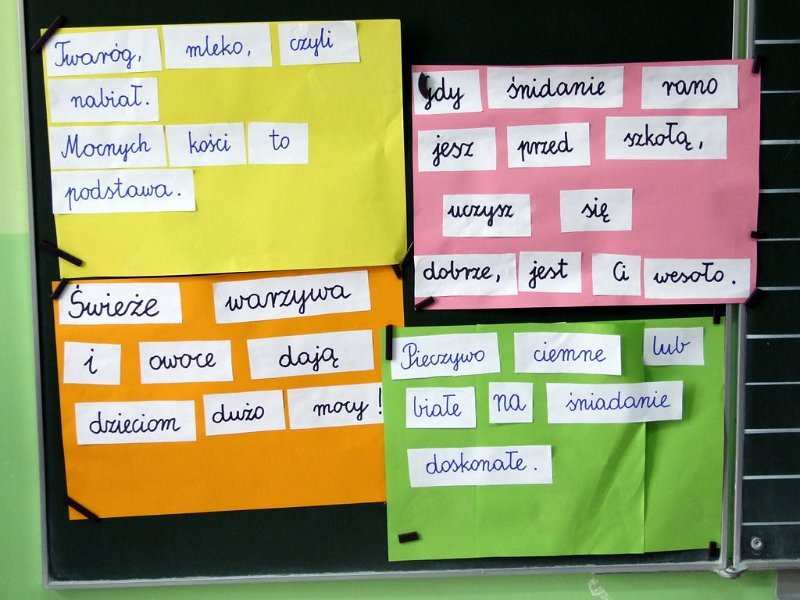 Twaróg, mleko, czyli
nabiał.
Mocnych kości to
podstawa.
Gdy śnidanie rano
jesz przed szkołą,
uczysz się
dobrze, jest Ci wesoło.
Świeże warzywa
i owoce dają
dzieciom dużo mocy!
Pieczywo ciemne lub
białe na śniadanie
doskonałe.